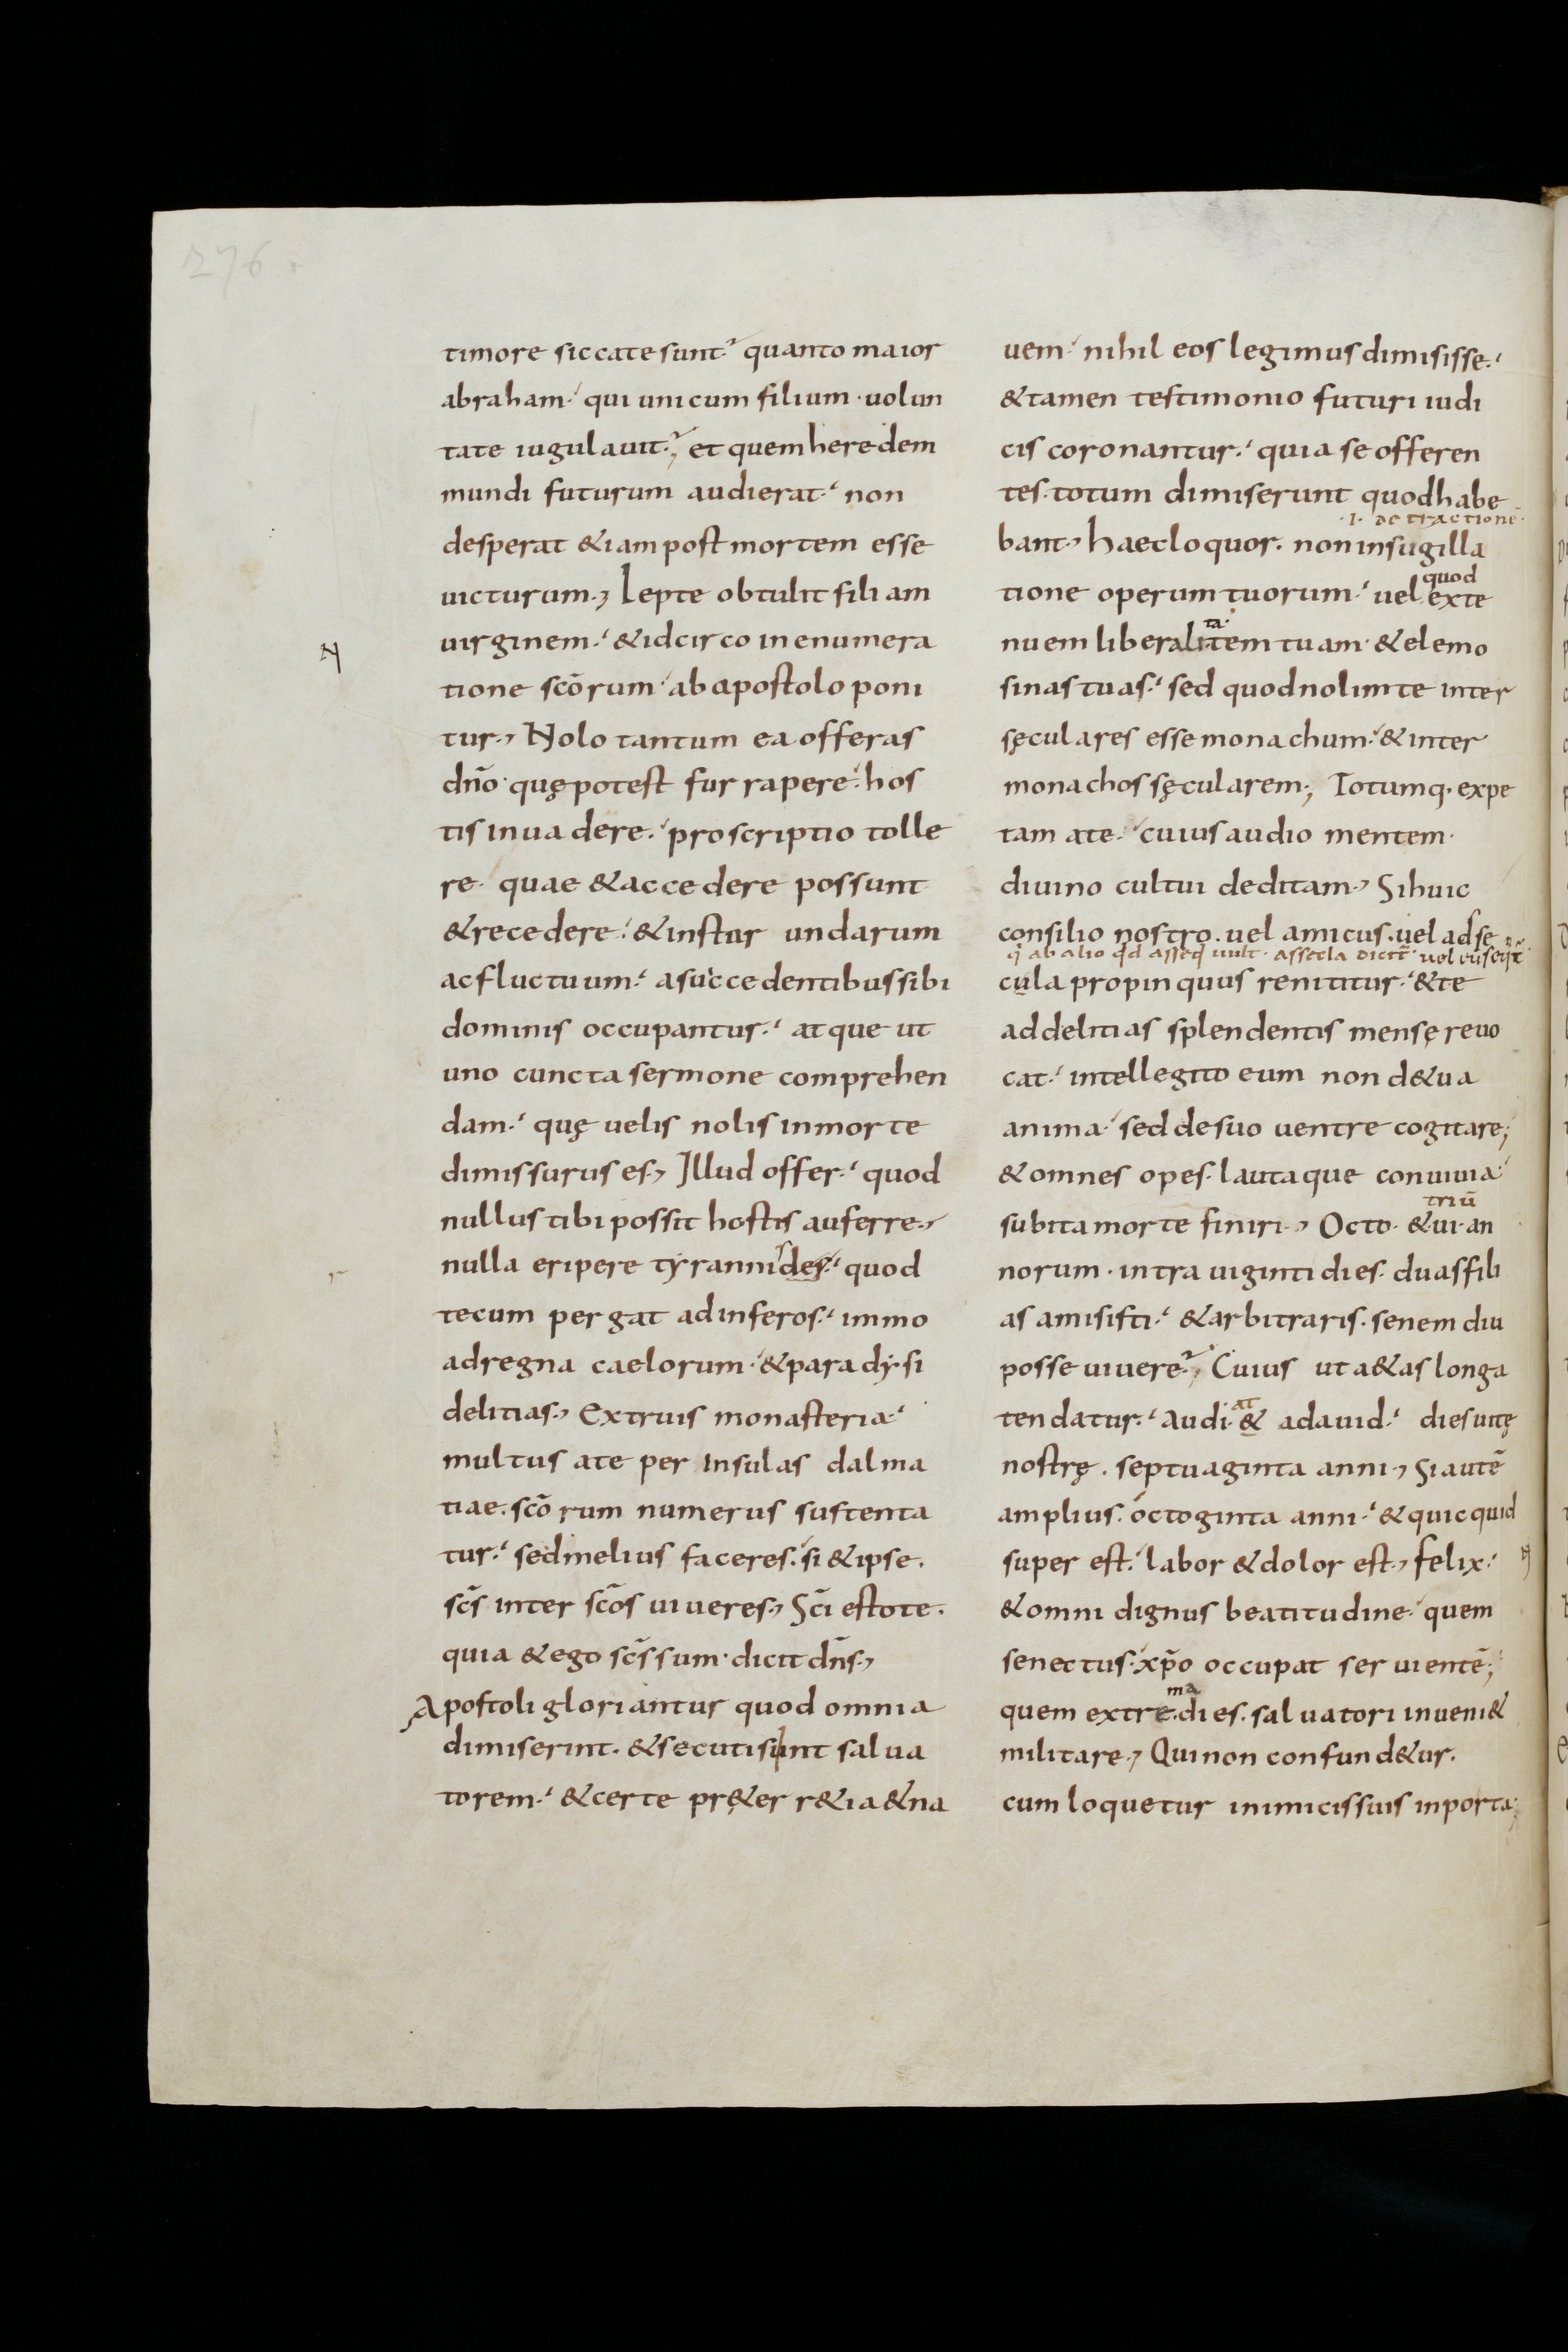 276.
timore siccate sunt? quanto maior
abraham· qui unicum filium · uolun
tate iugulauit?; et quem heredem
mundi futurum audierat· non
desperat &iam post mortem esse
uicturum·, Iepte obtulit filiam
uirginem· &idcirco in enumera
tione scōrum· ab apostolo poni
tur·, Nolo tantum ea offeras
dn̄o· quę potest fur rapere· hos
tis inuadere· proscriptio tolle
re· quae &accedere possunt
&recedere· &instar undarum
ac fluctuum· a succedentibus sibi
dominis occupantur· atque ut
uno cuncta sermone comprehen
dam· quę uelis nolis in morte
dimissurus es·, Illud offer· quod
nullus tibi possit hostis auferre·,
nulla eripere tyrannides· quod
tecum pergat ad inferos· immo
ad regna caelorum· &paradysi
delitias·, Extruis monasteria·
multus a te per insulas dalma
tiae· scōrum numerus sustenta
tur· sed melius faceres· si &ipse·
scs̄ inter scōs uiueres·, Sci̅ estote·
quia &ego scs̄ sum· dicit dn̄s·,
Apostoli gloriantur quod omnia
dimiserint· &secuti sunt salua
torem· &certe pr&er r&ia &na
uem· nihil eos legimus dimisisse·
&tamen testimonio futuri iudi
cis coronantur· quia se offeren
tes· totum dimiserunt quod habe
·i· detractionē·
bant·, haec loquor· non in sugilla
quod
tione operum tuorum· uel exte
ta·
nuem liberalitem tuam· &elemo
sinas tuas· sed quod nolim te inter
sęculares esse monachum· &inter
monachos sęcularem·, Totumq· expe
tam a te· cuius audio mentem·
diuino cultui deditam·, Si huic
consilio nostro· uel amicus· uel adse
q ab alio qd asseq uult· assecla dicit̄· uel
cula propinquus renititur· &te
ad delitias splendentis mensę reuo
cat· intellegito eum non d&ua
anima· sed de suo uentre cogitare;
&omnes opes· lautaque conuiuia·
triū
subita morte finiri·, Octo· &ui· an
norum· intra uiginti dies· duas fili
as amisisti· &arbitraris· senem diu
posse uiuere?, Cuius ut a&as longa
at
tendatur· Audi· & adauid· dies uitę
nostrę· septuaginta anni·, Si autē
amplius· octoginta anni· &quicquid
super est· labor &dolor est·, felix·
&omni dignus beatitudine· quem
senectus· xp̄o occupat seruientē;
ma
quem extre·dies· saluatori inueni&
militare·, Qui non confund&ur·
cum loquetur inimicis suis in porta;